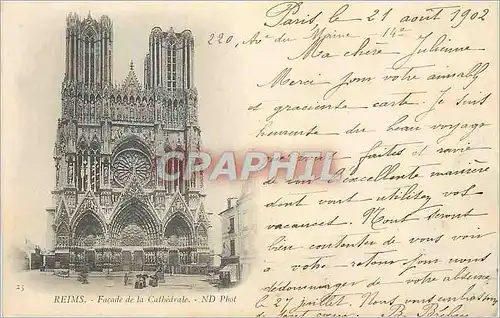 Paris, le 21 août 1902
220, Av^e du Maine 14^e
Ma chère Julienne
Merci pour votre aimable
et gracieuse carte. Je suis
heureuse du beau voyage
que vous faites et ravie
de l'excellente manière
dont vont utilisez vos
vacances. Nous serons
bien contentes de vous voir
à votre retour pour nous
dédommager de votre absence
le 27 juillet. Nous vous embrassons
de tout cœur.
CPARHAMA
25
REIMS. - Façade de la Cathédrale. - ND Phot